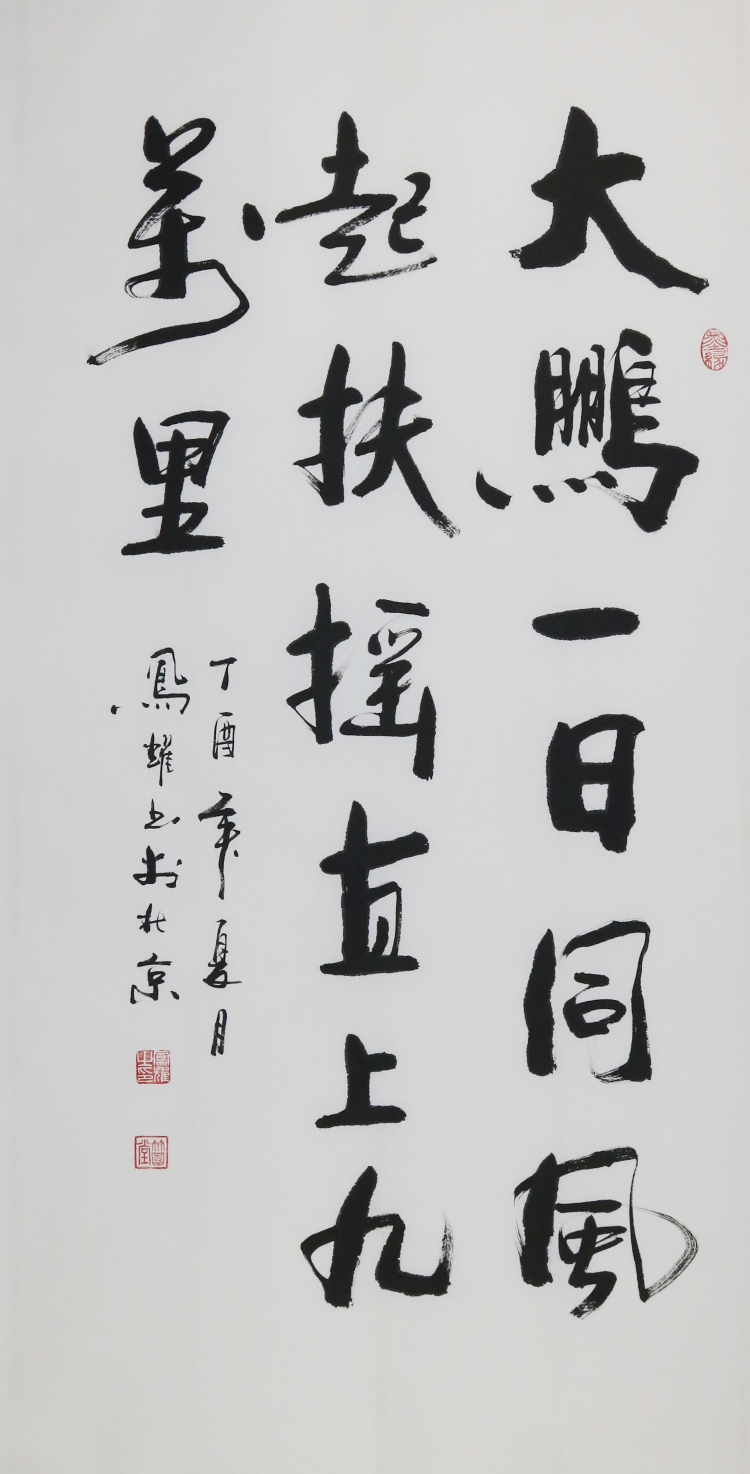 大鵬一日同風
起扶摇直上九
萬里
丁酉年夏月
鳳耀书於北京